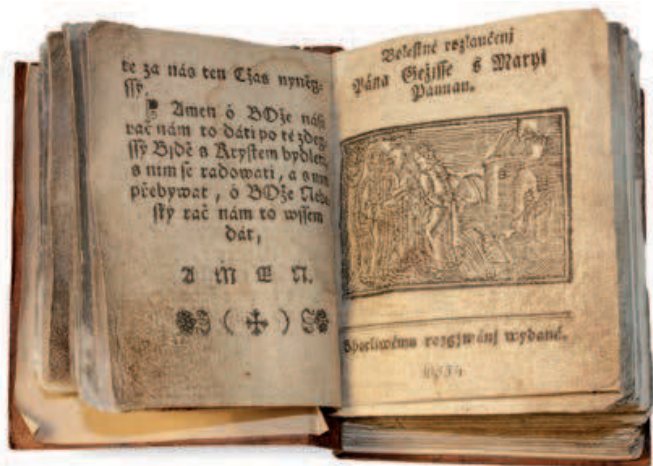 te za nás ten Cžas nyněg-
ssý.
Amen ó BOže náš
rač nám to dáti po té zdeg-
ssý Bjdě s Krystem bydlet,
s nim se radowati, a s nim
přebywat, ó BOže Nebe-
ský rač nám to wssem
dát,
A M E N.
Bolestné rozlaučenj
Pána Gežisse s Maryí
Pannau.
Horliwému rozgjmánj wydané.